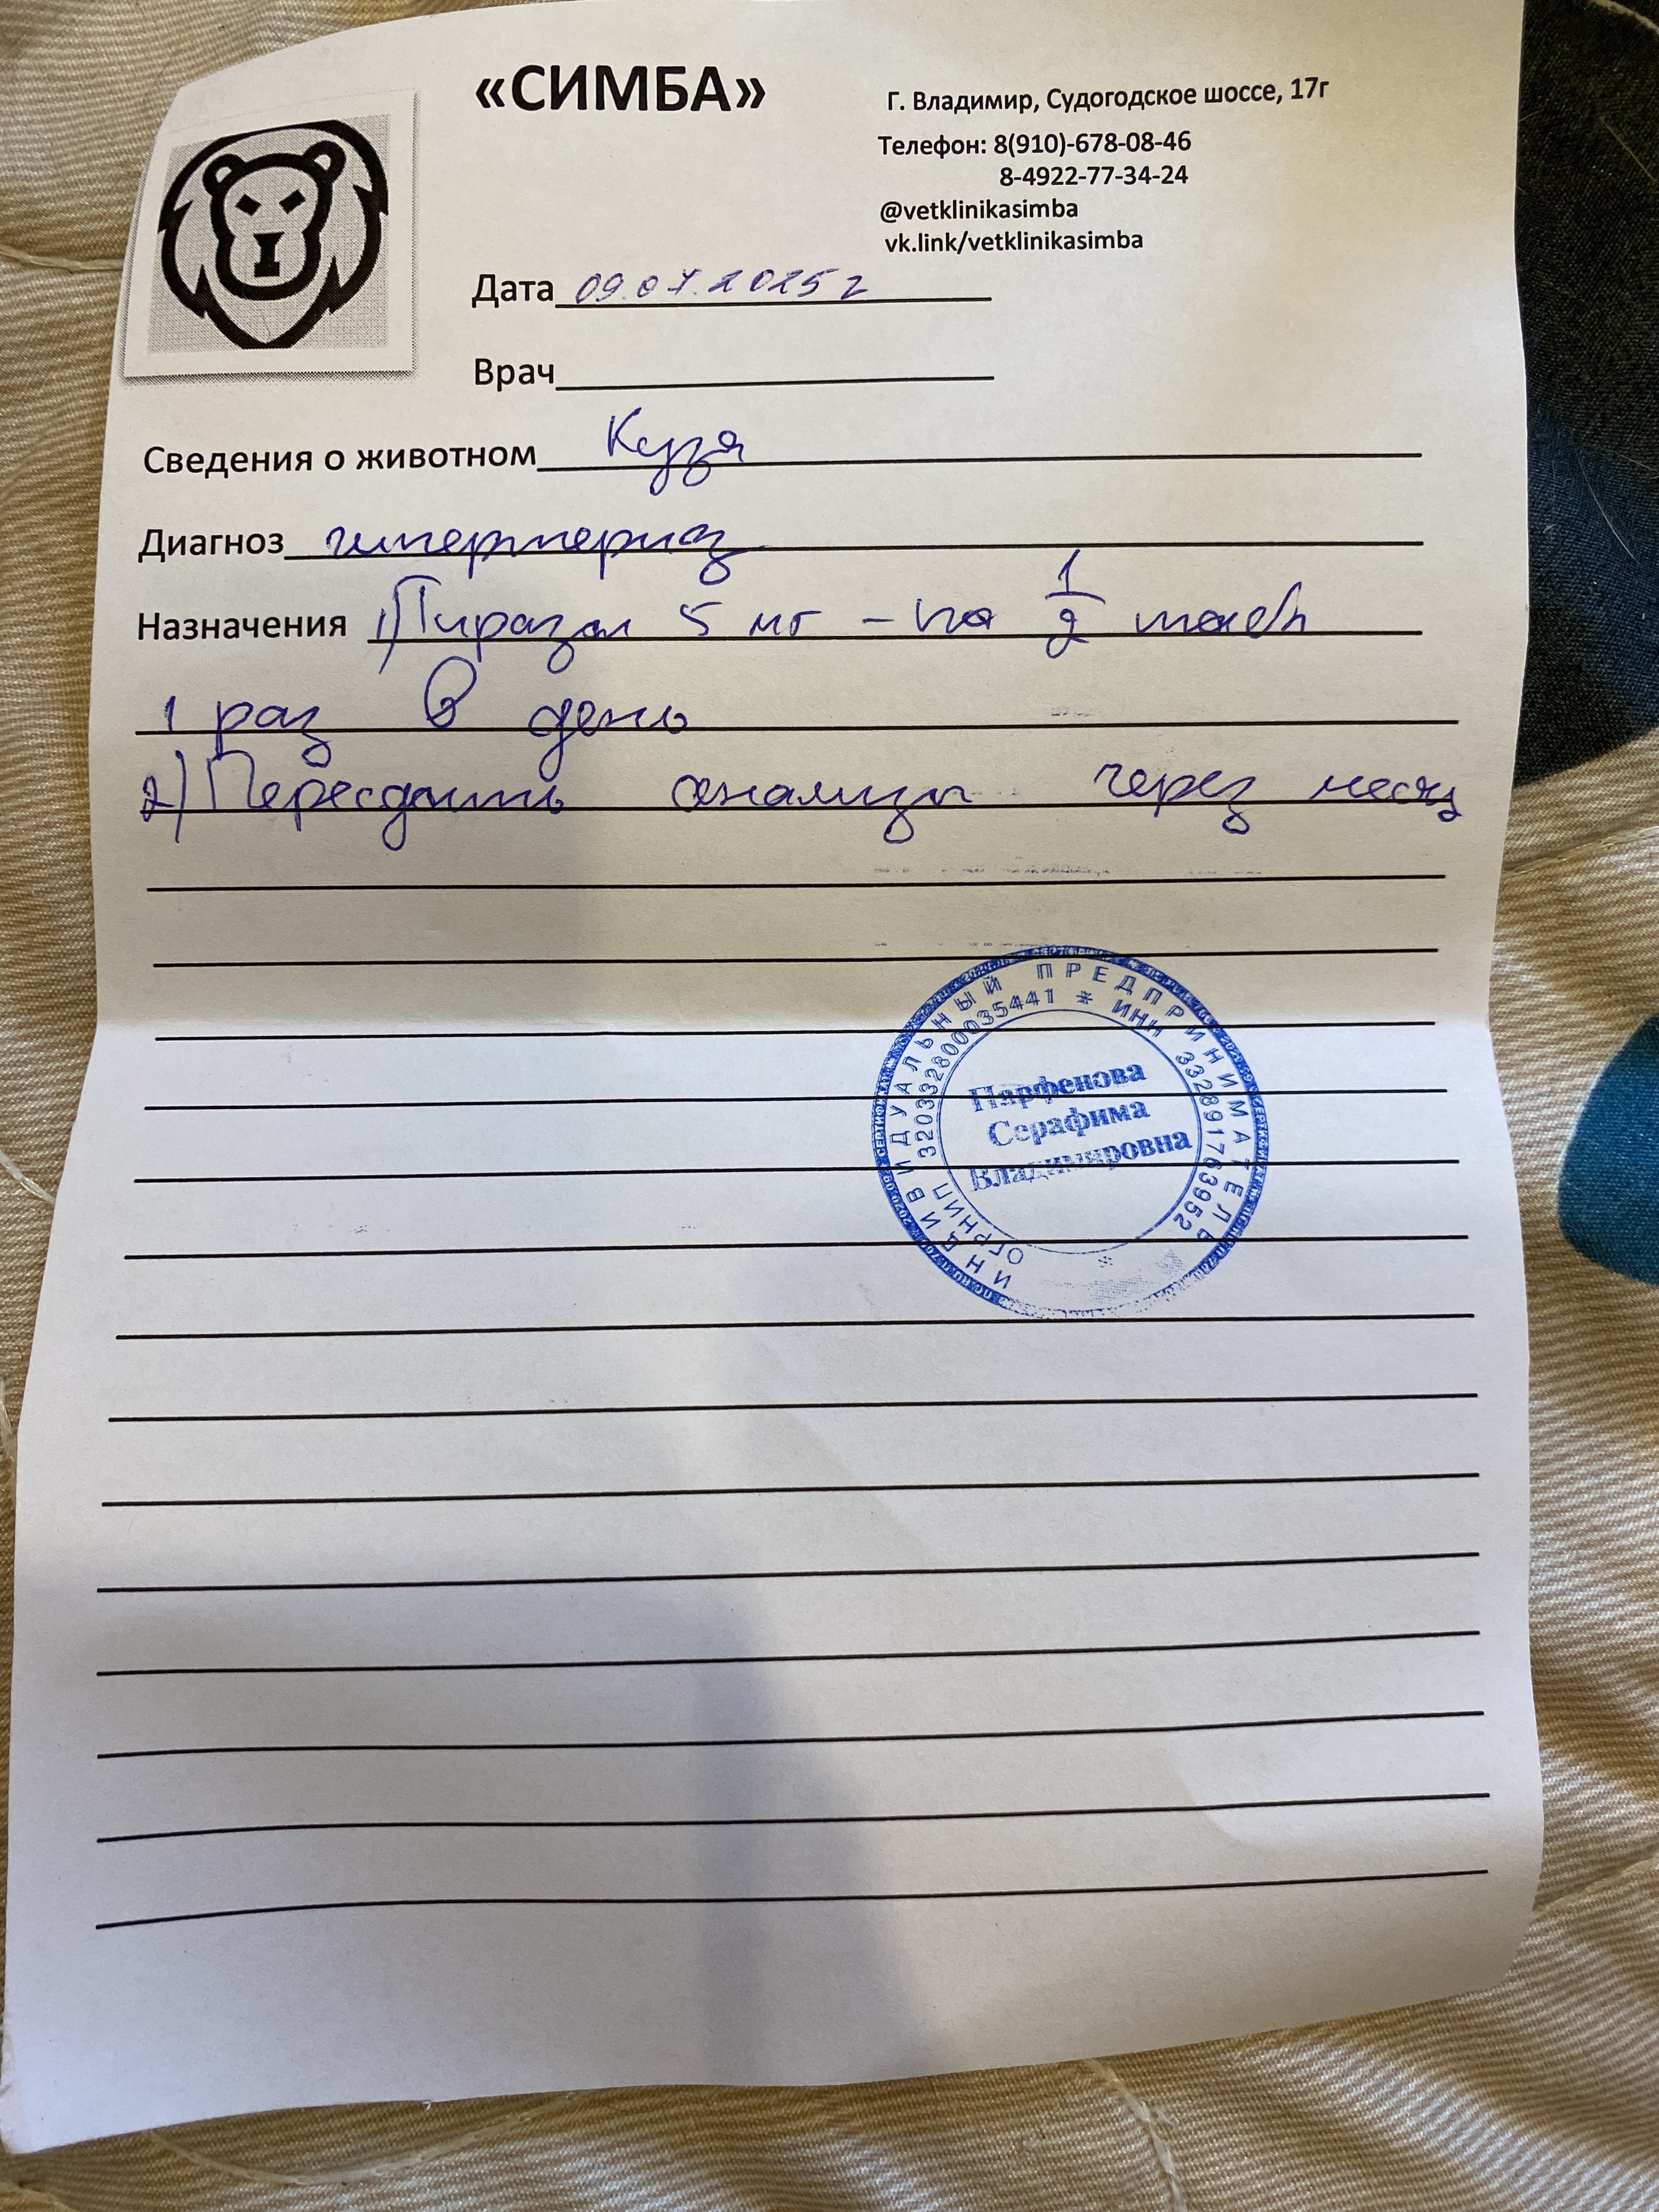 «СИМБА»
Г. Владимир, Судогодское шоссе, 17г
Телефон: 8(910)-678-08-46
8-4922-77-34-24
@vetklinikasimba
vk.link/vetklinikasimba
Дата 09.07.2025 г
Врач
Сведения о животном Кузя
Диагноз гипертериоз
Назначения 1) Тиразол 5 мг – по 1/2 табл
1 раз в день
2) Пересдать анализы через месяц
ИНДИВИДУАЛЬНЫЙ ПРЕДПРИНИМАТЕЛЬ
ОГРНИП 320332800035441 * ИНН 332891763952
Парфенова
Серафима
Владимировна